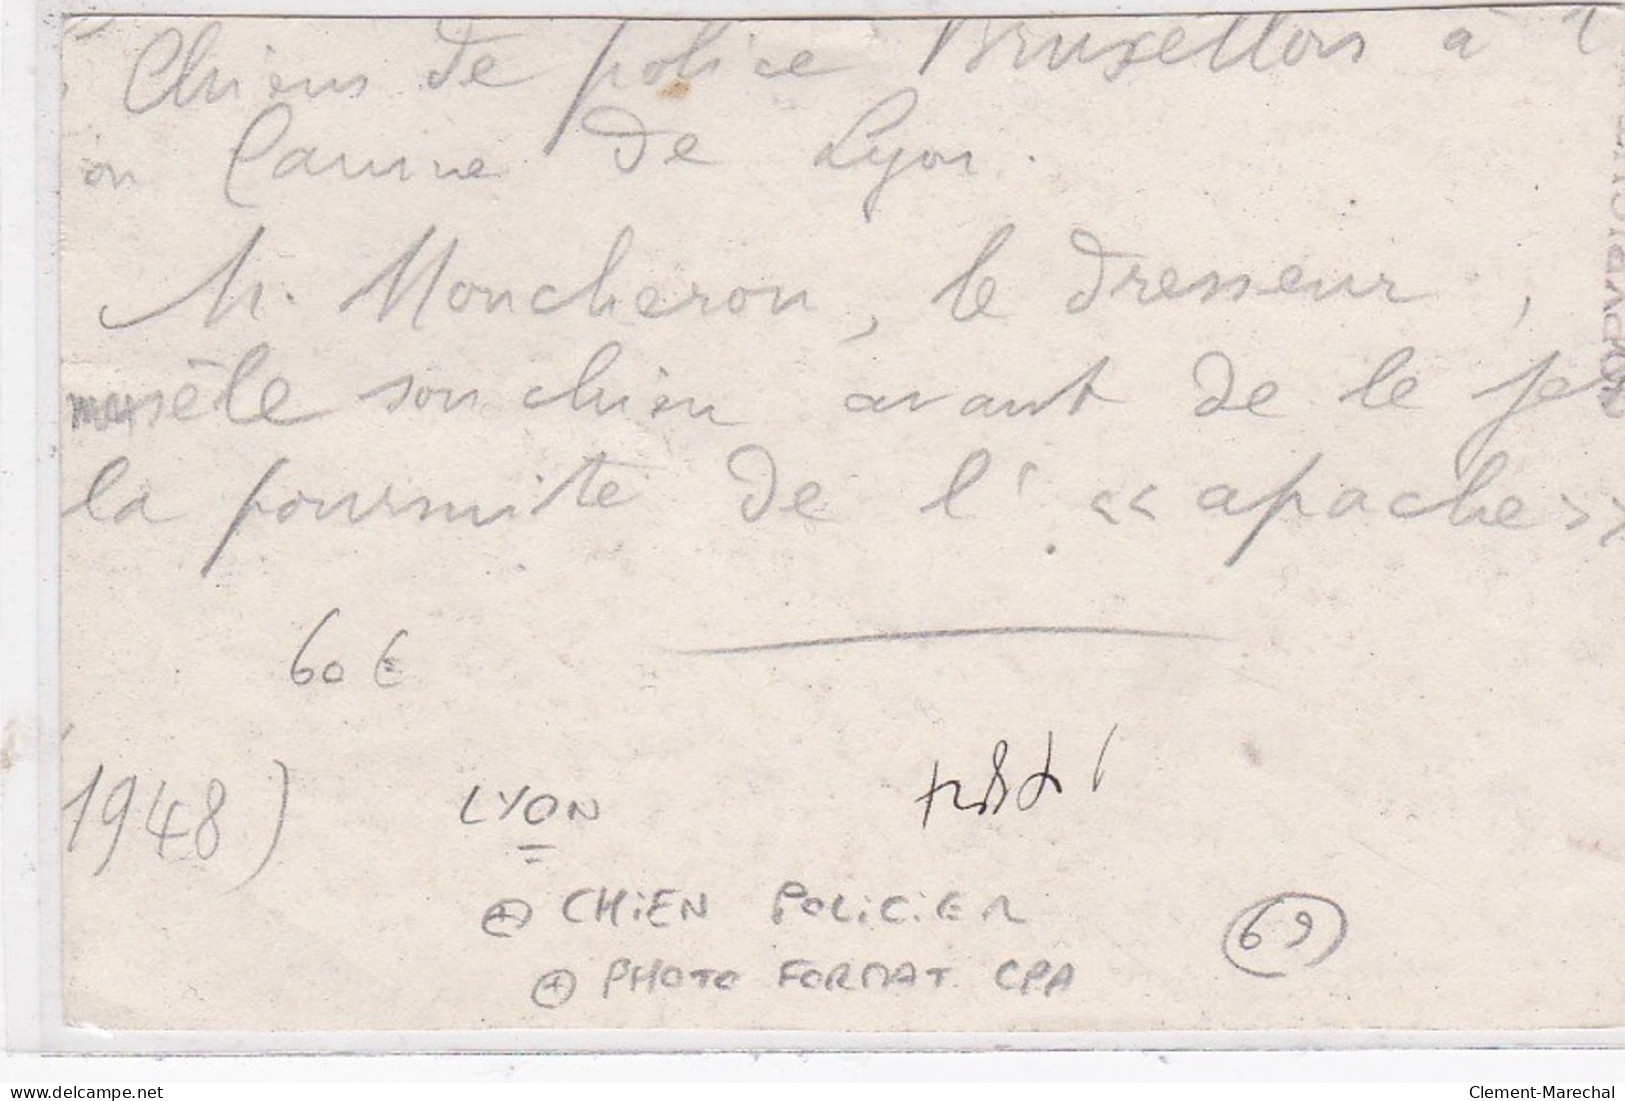 Chiens de police Bruxellois à l'
on Canine de Lyon.
M. Moncheron, le dresseur,
muselle son chien avant de le je
la poursuite de l' «apache»
60 €
(1948)
LYON
CHIEN POLICIER
69
PHOTO FORMAT CPA
www.delcampe.net
Clement-Marechal